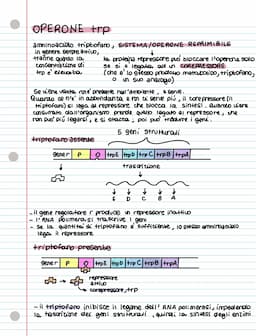 OPERONE trp
amminoacido triptofano, SISTEMA/OPERONE REPRIMIBILE
in genere sempre attivo,
tranne quando la
concentrazione di
trp è elevata
la proteina repressore può bloccare l'operone solo
se si è legata ad un COREPRESSORE
(che è lo stesso prodotto metabolico, triptofano,
o un suo analogo)
Se viene usato, non è presente nell'ambiente, serve.
Quando ce n'è in abbondanza e non ci serve più, il corepressore (il
triptofano) si lega al repressore che blocca la sintesi. Quando viene
consumato dall'organismo prende quello legato al repressore, che
non può più legarsi, e si stacca, poi può tradurre i geni.
triptofano assente
5 geni strutturali
gene r P O trpE trpD trpC trpB trpA
trascrizione
E D C B A
- il gene regolatore r produce un repressore inattivo
- l'RNA polimerasi trascrive i geni
- Se la quantità di triptofano è sufficiente, lo stesso amminoacido
lega il repressore
triptofano presente
gene r P O trpE trpD trpC trpB trpA
repressore
attivo
corepressore, trp
- il triptofano inibisce il legame dell'RNA polimerasi, impedendo
la trascrizione dei geni strutturali, quindi la sintesi degli enzimi